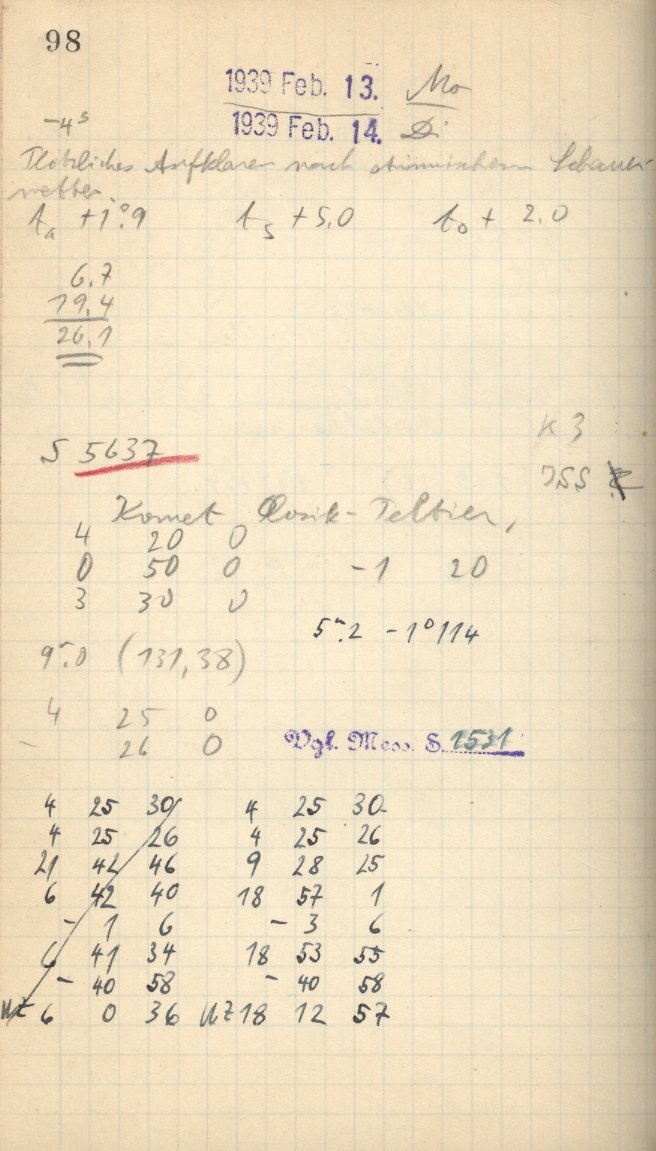 98
1939 Feb. 13. Mo
1939 Feb. 14. Di
-4ˢ
Plötzliches Aufklaren nach stürmischem Schauer-
wetter.
tₐ +1°.9 tₛ +5,0 t₀ + 2,0
6,7
19,4
26,1
S 5637
K 3
JSS
Komet Cosik-Peltier,
4 20 0
0 50 0 -1 20
3 30 0
5ᵐ.2 -1°114
9ᵐ.0 (131,38)
4 25 0
- 26 0 Vgl. Mess. S. 1531
4 25 30 4 25 30
4 25 26 4 25 26
21 42 46 9 28 25
6 42 40 18 57 1
- 1 6 - 3 6
6 41 34 18 53 55
- 40 58 - 40 58
WZ 6 0 36 WZ 18 12 57